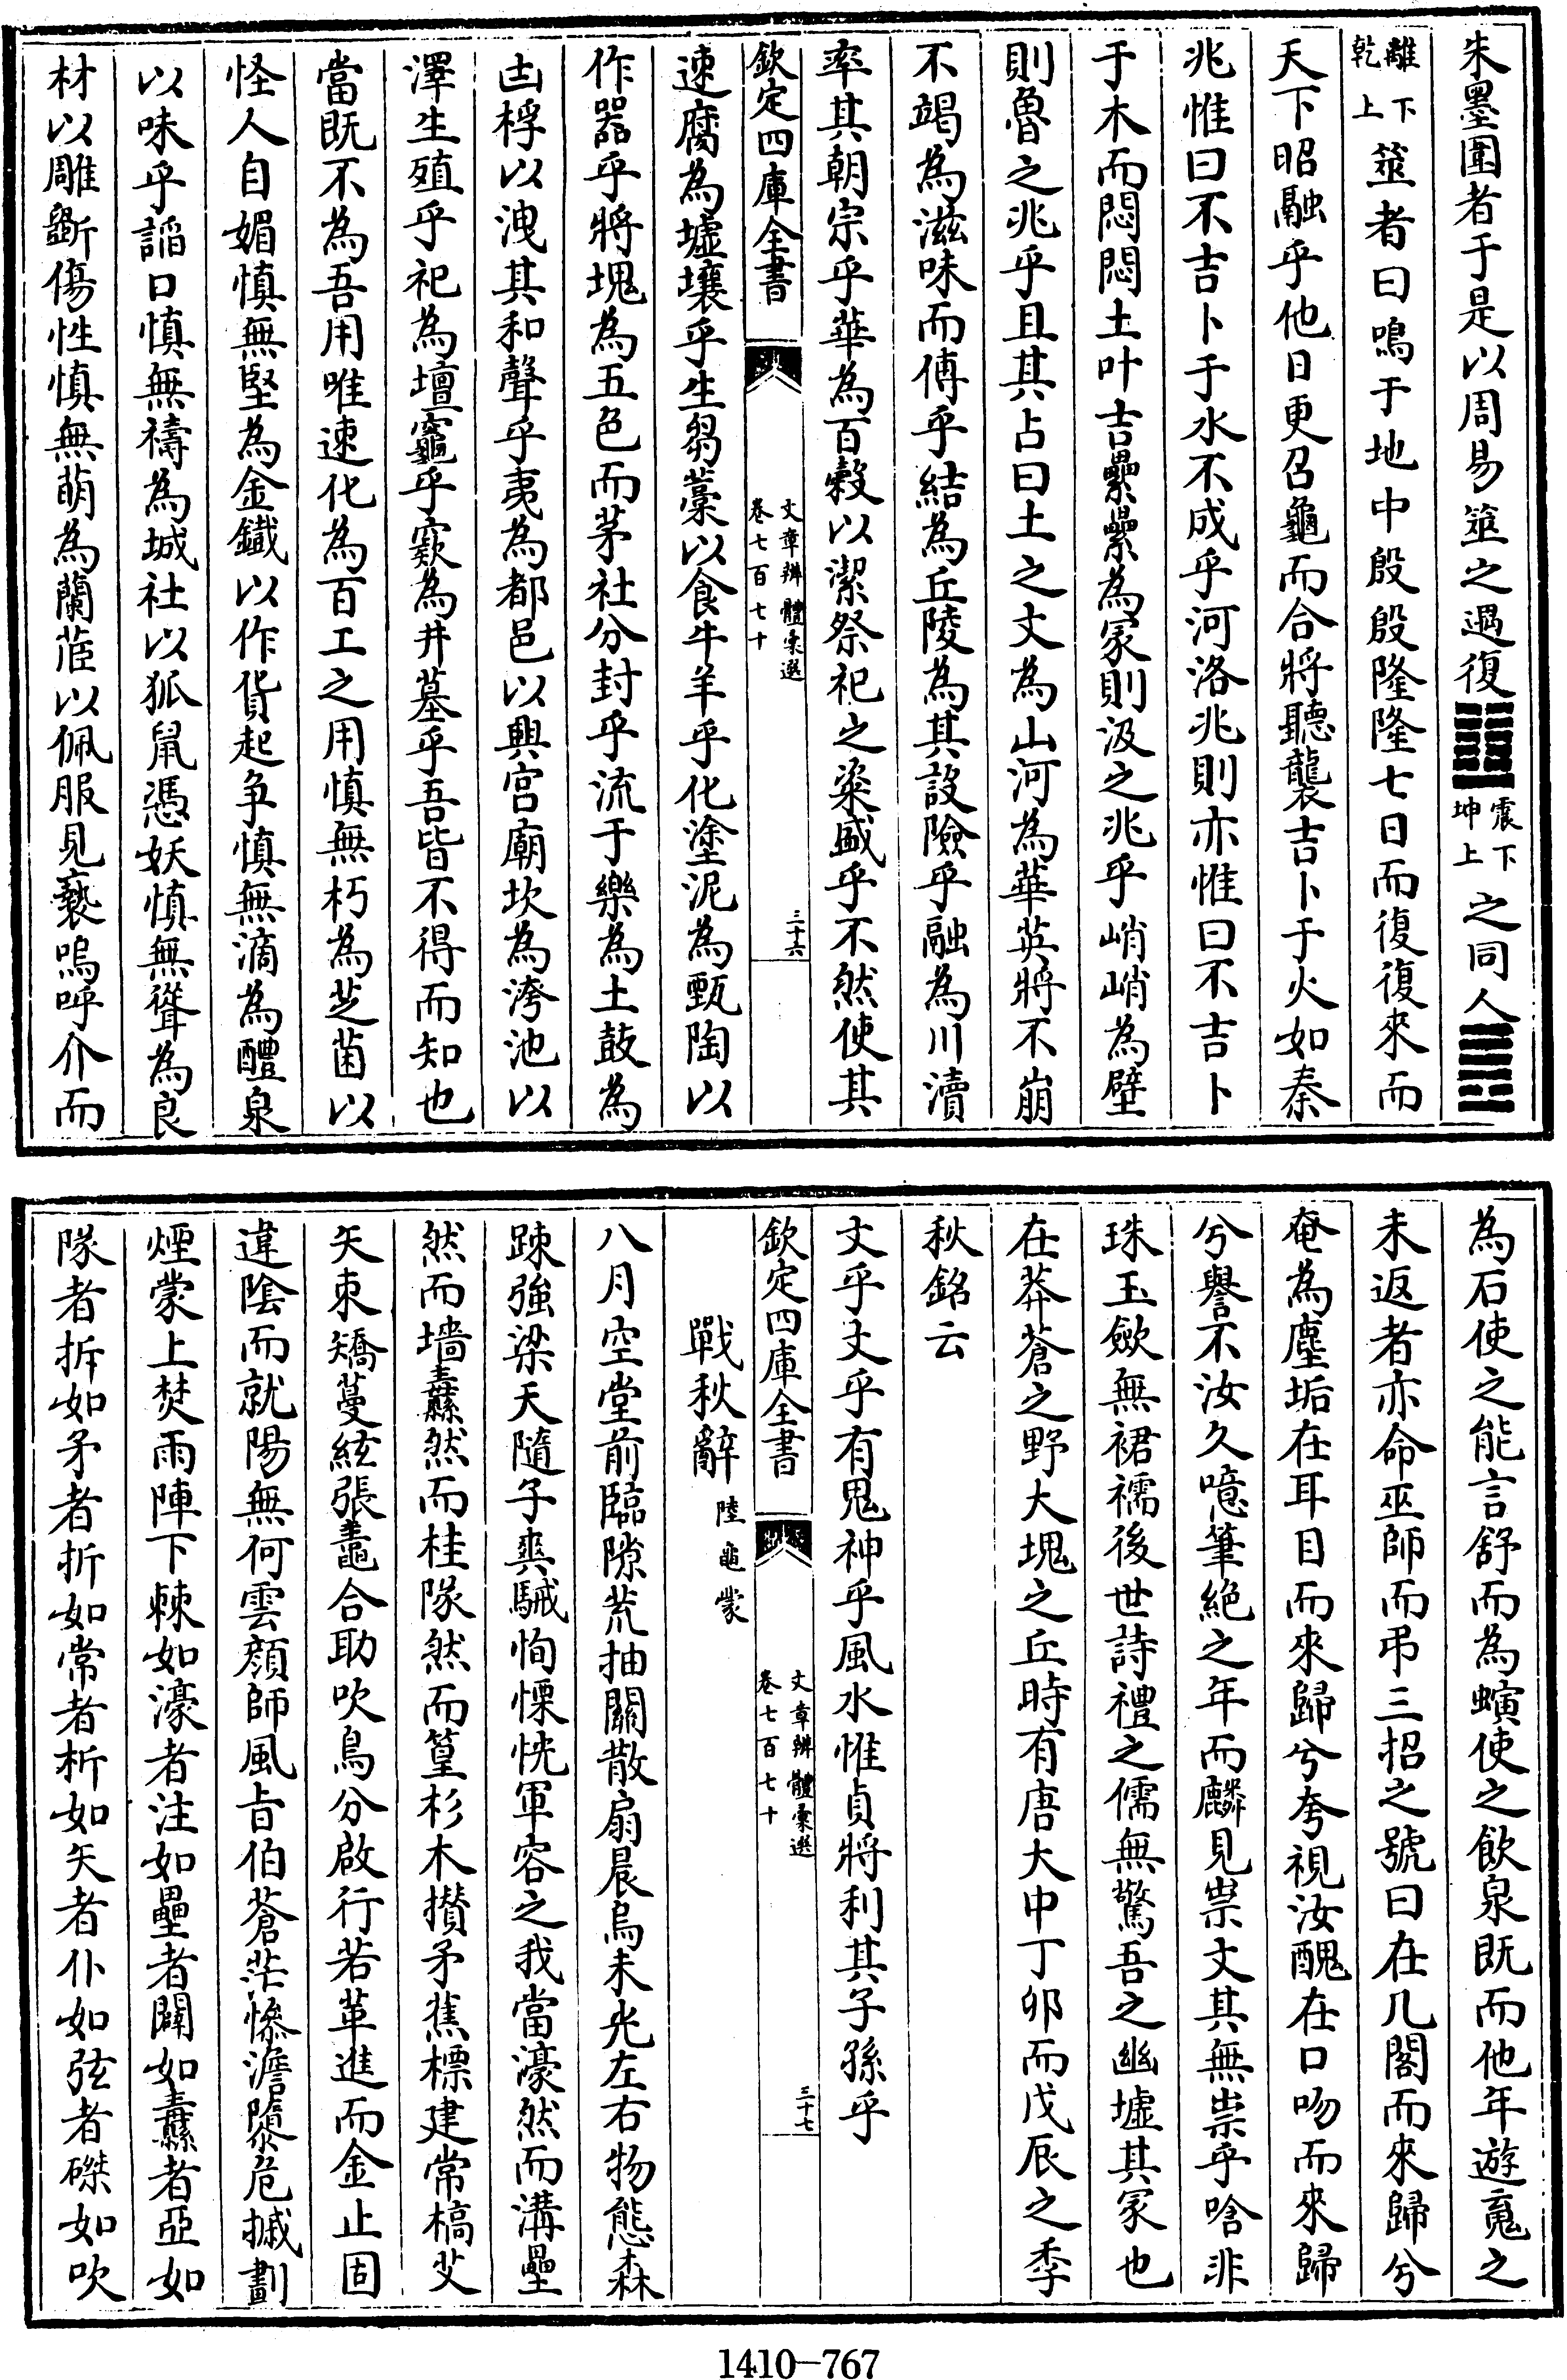 朱墨圍者于是以周易筮之遇復䷗震下坤上之同人䷌
離下乾上筮者曰鳴于地中殷殷隆隆七日而復復來而
天下昭融乎他日更召龜而合將聽襲吉卜于火如秦
兆惟曰不吉卜于水不成乎河洛兆則亦惟曰不吉卜
于木而悶悶土叶吉纍纍為冡則汲之兆乎峭峭為壁
則魯之兆乎且其占曰土之文為山河為華英將不崩
不竭為滋味而傅乎結為丘陵為其設險乎融為川瀆
率其朝宗乎華為百穀以潔祭祀之粢盛乎不然使其
欽定四庫全書
文章辨體彙選
卷七百七十
三十六
速腐為墟壤乎生芻藁以食牛羊乎化塗泥為甄陶以
作器乎將塊為五色而茅社分封乎流于樂為土鼓為
凷桴以洩其和聲乎夷為都邑以興宫廟坎為洿池以
澤生殖乎祀為壇竈乎窽為井墓乎吾皆不得而知也
當既不為吾用唯速化為百工之用慎無朽為芝菌以
怪人自媚慎無堅為金鐵以作貨起争慎無滴為醴泉
以味乎謟口慎無禱為城社以狐鼠憑妖慎無聳為良
材以雕斵傷性慎無萌為蘭茝以佩服見褻嗚呼介而
為石使之能言舒而為螾使之飲泉既而他年遊䰟之
未返者亦命巫師而弔三招之號曰在几閣而來歸兮
奄為塵垢在耳目而來歸兮夸視汝醜在口吻而來歸
兮譽不汝久噫筆絶之年而麟見祟文其無祟乎唅非
珠玉歛無裙襦後世詩禮之儒無驚吾之幽墟其冡也
在莽蒼之野大塊之丘時有唐大中丁卯而戊辰之季
秋銘云
文乎文乎有鬼神乎風水惟貞將利其子孫乎
欽定四庫全書
文章辨體彙選
卷七百七十
三十七
戰秋辭 陸龜蒙
八月空堂前臨隙荒抽關散扇晨烏未光左右物態森
疎強梁天隨子爽駴恂慄恍軍容之我當濠然而溝壘
然而墻纛然而桂隊然而篁杉木攅矛蕉標建常槁艾
矢束矯蔓絃張鼃合助吹鳥分啟行若革進而金止固
違隂而就陽無何雲顔師風旨伯蒼茫慘澹隳危摵劃
煙蒙上焚雨陣下棘如濠者注如壘者闢如纛者亞如
隊者拆如矛者折如常者析如矢者仆如弦者磔如吹
1410-767